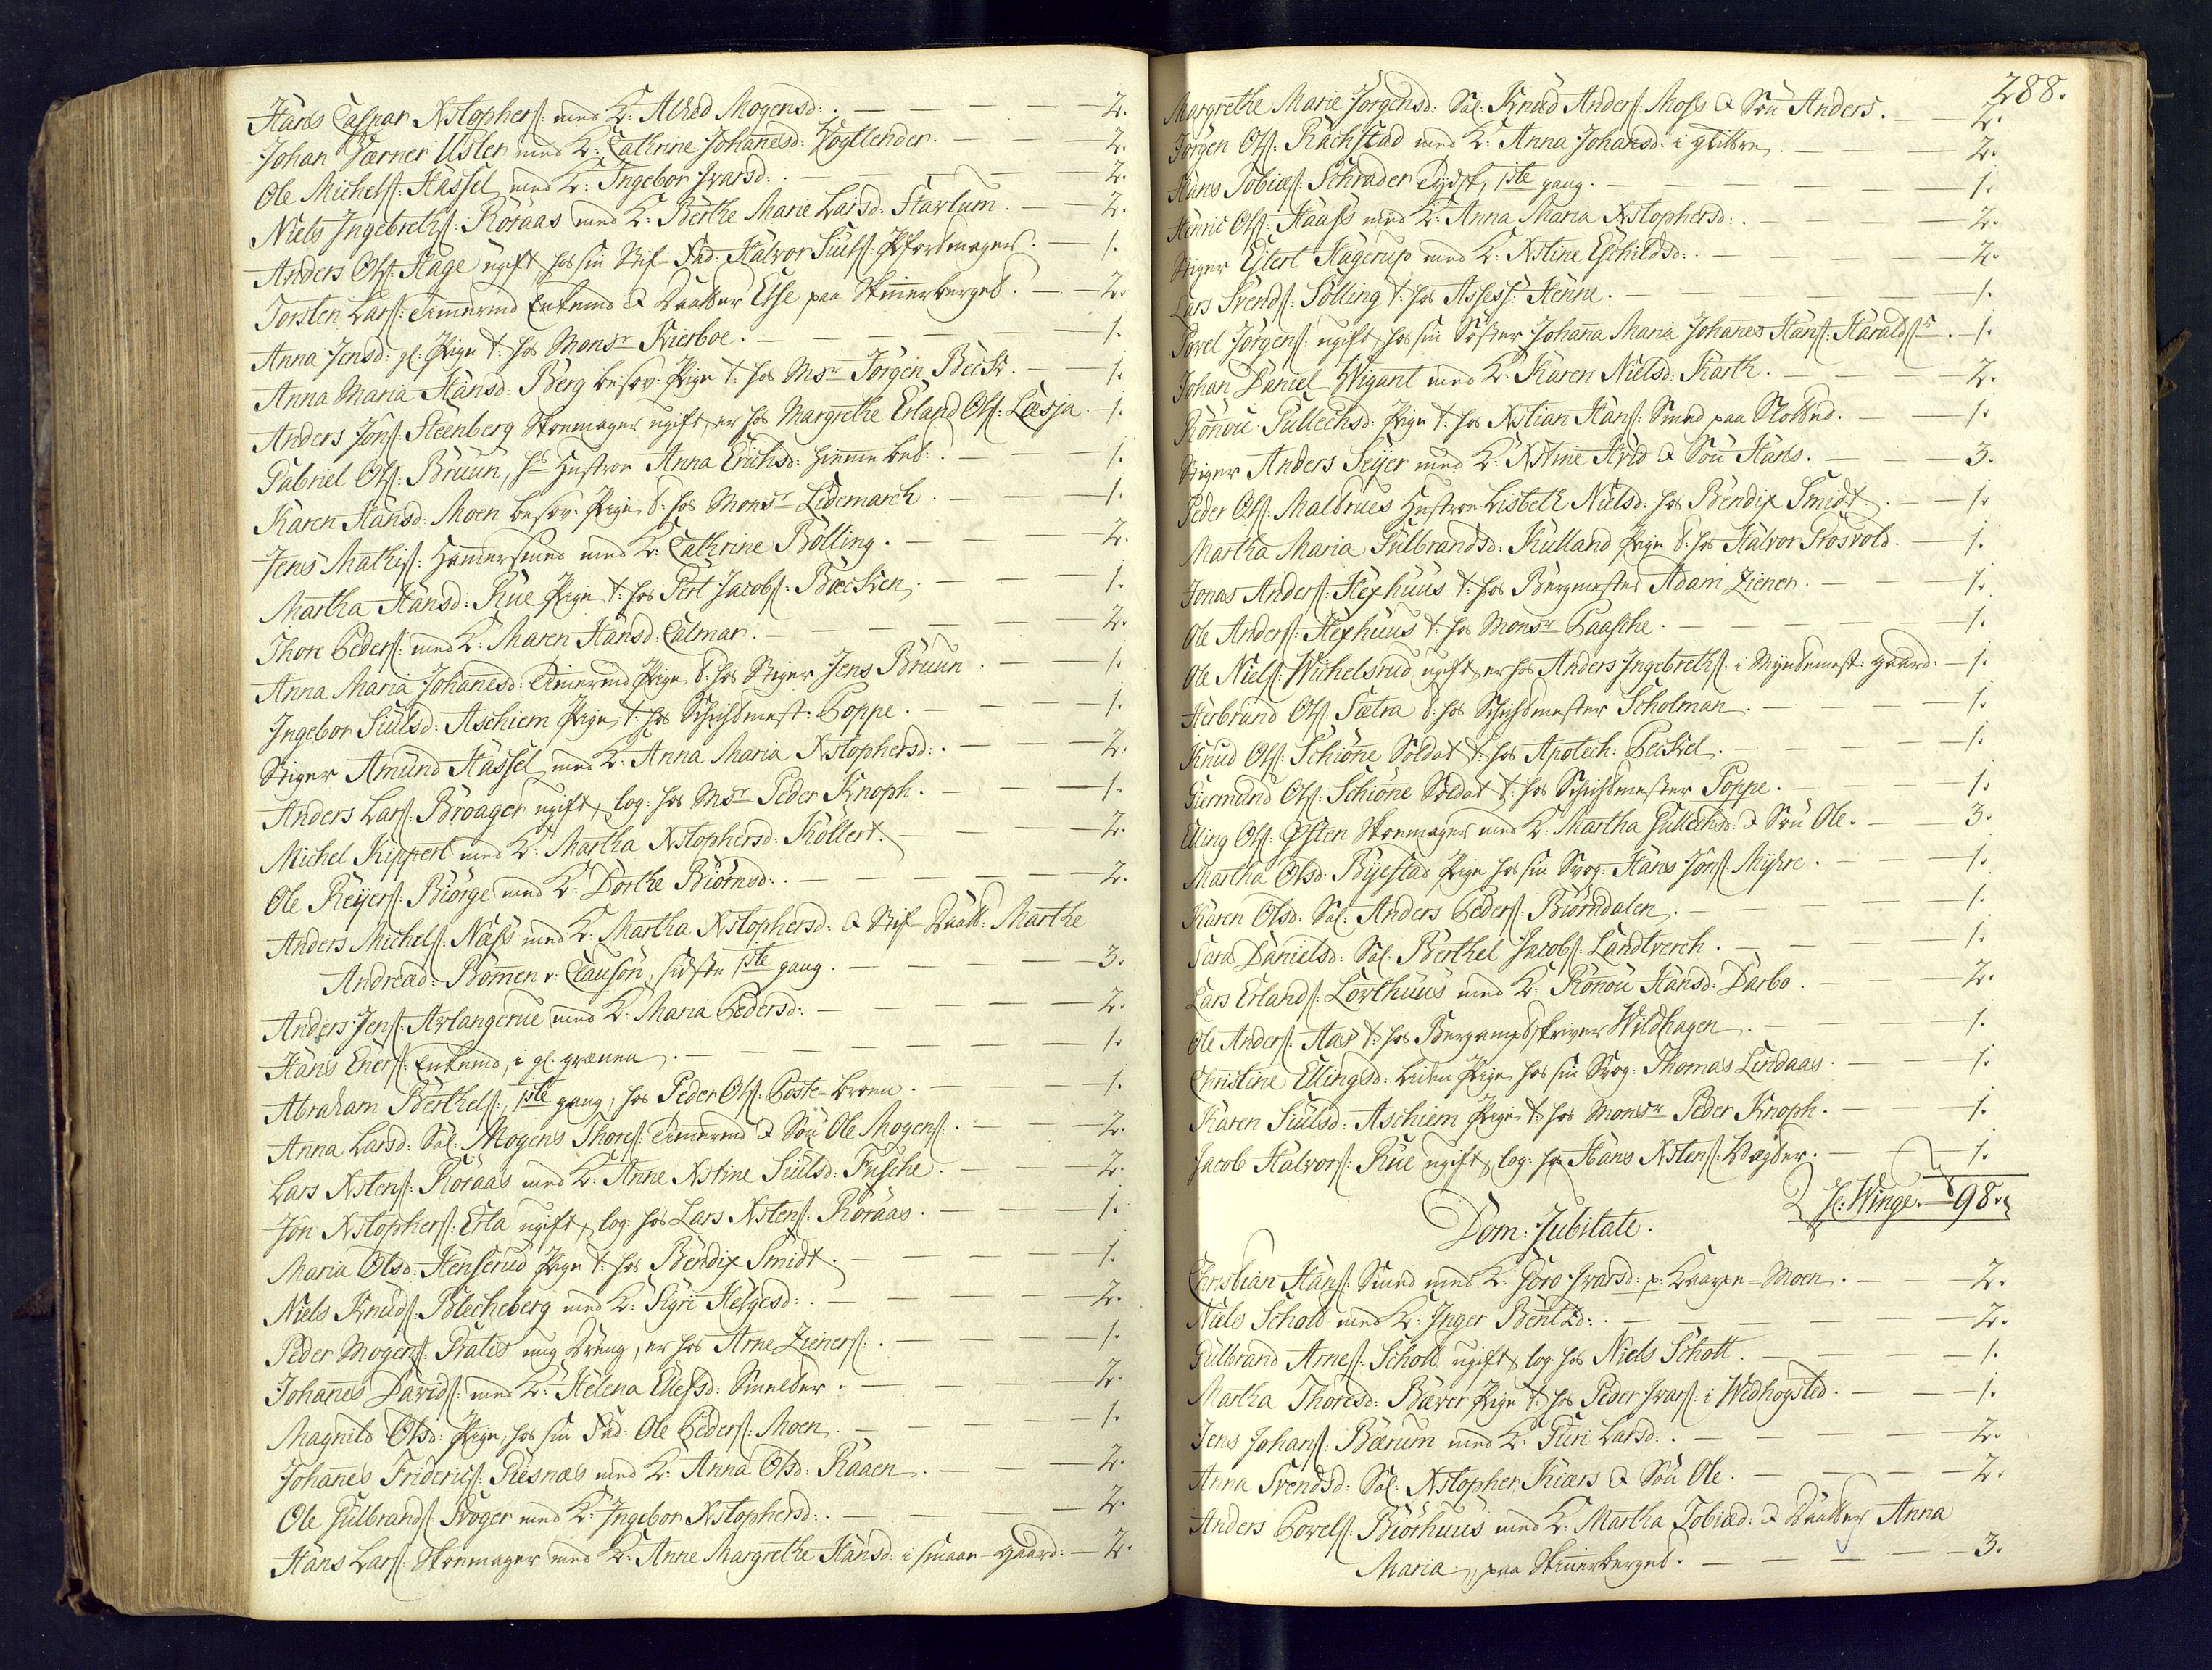 Hans Caspar Xstophers: med K: Alhed Mogensd: . — 2.
Johan Værner Usler med K: Cathrine Johannesd: Vogtlender. — 2.
Ole Michels: Hassel med K: Ingebor Ivarsd: . — 2.
Niels Ingebreths: Röraas med K: Berthe Marie Larsd: Starlum. — 2.
Anders Ols: Hage ugift hos sin Stif-Fad: Halvor Siuls: — 1.
Torsten Lars: Timermd Enkemd & Daatter Else paa Skinerberget. — 2.
Anna Jensd: gl. Pige t: hos Monsr Kierboe. — 1.
Anna Maria Hansd: Berg besov: Pige t: hos Msr Jörgen Beck. — 1.
Anders Jons: Steenberg Skomager ugift, er hos Margrethe Erland Ols: Læsja. — 1.
Gabriel Ols: Bruun, hs Hustroe Anna Erichsd: hiemme bet: . — 1.
Karen Hansd: Moen besov: Pige t: hos Monsr Lidemarch. — 1.
Jens Mathis: Hamersmed med K: Cathrine Bölling. — 2.
Martha Hansd: Rue Pige t: hos Pert Jacobs: Bæcken. — 1.
Thore Peders: med K: Maren Hansd: Calmar. — 2.
Anna Maria Johannesd: Timermd Pige t: hos Stiger Jens Bruun. — 1.
Ingebor Siulsd: Aschiem Pige t: hos Schichtmest: Poppe. — 1.
Stiger Amund Hassel med K: Anna Maria Xstophersd: . — 2.
Anders Lars: Broager ugift, log: hos Msr Peder Knoph. — 1.
Michel Kippert med K: Martha Xstophersd: Kollert. — 2.
Ole Reijers: Biörge med K: Dorthe Biörnsd: . — 2.
Anders Michels: Næss med K: Martha Xstophersd: & Stif-Daatt: Marthe
Andread: Bömmen v: Clausön, sidste 1ste gang. — 3.
Anders Jens: Arlangerue med K: Maria Pedersd: — 2.
Hans Eners: Enkemd, i gl. grænen. — 1.
Abraham Berthels: 1ste gang, hos Peder Ols: Poste-broen. — 1.
Anna Larsd: Sal: Mogens Thores: Timermd & Sön Ole Mogens: . — 2.
Lars Xstens: Röraas med K: Anne Xstine Siulsd: Frische. — 2.
Jon Xstophers: Erla ugift, log: hos Lars Xstens: Röraas. — 1.
Maria Olsd: Henserud Pige t: hos Bendix Smidt. — 1.
Niels Knuds: Blecheberg med K: Sigri Helgesd: . — 2.
Peder Mogens: Pratis ung Dreng, er hos Arne Zieners: . — 1.
Johannes Davids: med K: Helena Ellefsd: Smelter. — 2.
Magnild Olsd: Pige, hos sin Fad: Ole Peders: Moen. — 1.
Johannes Friderics: Giesnæs med K: Anna Olsd: Raaen. — 2.
Ole Gulbrands: Svoger med K: Ingebor Xstophersd: . — 2.
Hans Lars: Skomager med K: Anne Margrethe Hansd: i smaae-gaard: — 2.
288.
Margrethe Marie Jörgensd: Sal: Knud Anders: Moss & Sön Anders. — 2.
Jörgen Ols: Rachstad med K: Anna Johansd: i glitteren. — 2.
Hans Tobiæs: Schrader Tydsk, 1ste gang. — 1.
Henric Ols: Haass med K: Anna Maria Xstophersd: . — 2.
Stiger Eylert Hagerup med K: Xstine Eschildsd: . — 2.
Lars Svends: Sölling t: hos Assess: Henne. — 1.
Povel Jörgens: ugift, hos sin Söster Johanna Maria Johanes Hans: Haralds:s. — 1.
Johan Daniel Wigant med K: Karen Nillsd: Karth. — 2.
Rönou Gullechsd: Pige t: hos Xstian Hans: Smed paa Slottet. — 1.
Stiger Anders Seijer med K: Xstine Arid & Sön Hans. — 3.
Peder Ols: Maldrues Hustroe Lisbeth Nielsd: hos Bendix Smidt. — 1.
Martha Maria Gulbrandsd: Kulland Pige t: hos Halvor Prosvold. — 1.
Jonas Anders: Hexhuus t: hos Bergmester Adam Ziener. — 1.
Ole Anders: Hexhuus t: hos Monsr Paasche. — 1.
Ole Niels: Wichelsrud ugift, er hos Anders Ingebreths: i Myntemest: gaard. — 1.
Herbrand Ols: Sætra t: hos Schichtmester Scholman. — 1.
Knud Ols: Schiönne Soldat t: hos Apotech: Peckel. — 1.
Giermund Ols: Schiönne Soldat t: hos Schichtmester Poppe. — 1.
Elling Ols: Østen Skomager med K: Martha Gullechsd: & Sön Ole. — 3.
Martha Olsd: Bijestad Pige hos sin Svog: Hans Jons: Myhre. — 1.
Karen Olsd: Sal: Anders Peders: Biörndalen. — 1.
Sara Danielsd: Sal: Berthel Jacobs: Landtverch. — 1.
Lars Erlands: Lörthuus med K: Rönou Hansd: Darbo. — 2.
Ole Anders: Aas t: hos Bergamptskriver Wildhagen. — 1.
Christine Ellingsd: Pige hos sin Svog: Thomas Lindaas. — 1.
Karen Siulsd: Aschiem Pige t: hos Monsr Peder Knoph. — 1.
Jacob Halvors: Rue ugift, log: hos Hans Xstens: Vægter. — 1.
H: Winge. — 98.
Dom: Jubilate.
Christian Hans: Smed med K: Goro Ivarsd: p: Kaarpe-Moen. — 2.
Niels Schott med K: Inger Bentzd: . — 2.
Gulbrand Arnes: Schott ugift, log: hos Niels Schott. — 1.
Martha Thoresd: Bæver Pige t: hos Peder Ivars: i Wedhogsted. — 1.
Jens Johans: Bærum med K: Guri Larsd: . — 2.
Anna Svendsd: Sal: Xstopher Kiærs & Sön Ole. — 2.
Anders Povels: Biörhuus med K: Martha Tobiæd: & Daatter Anna
Maria, paa Skinerberget. — 3.